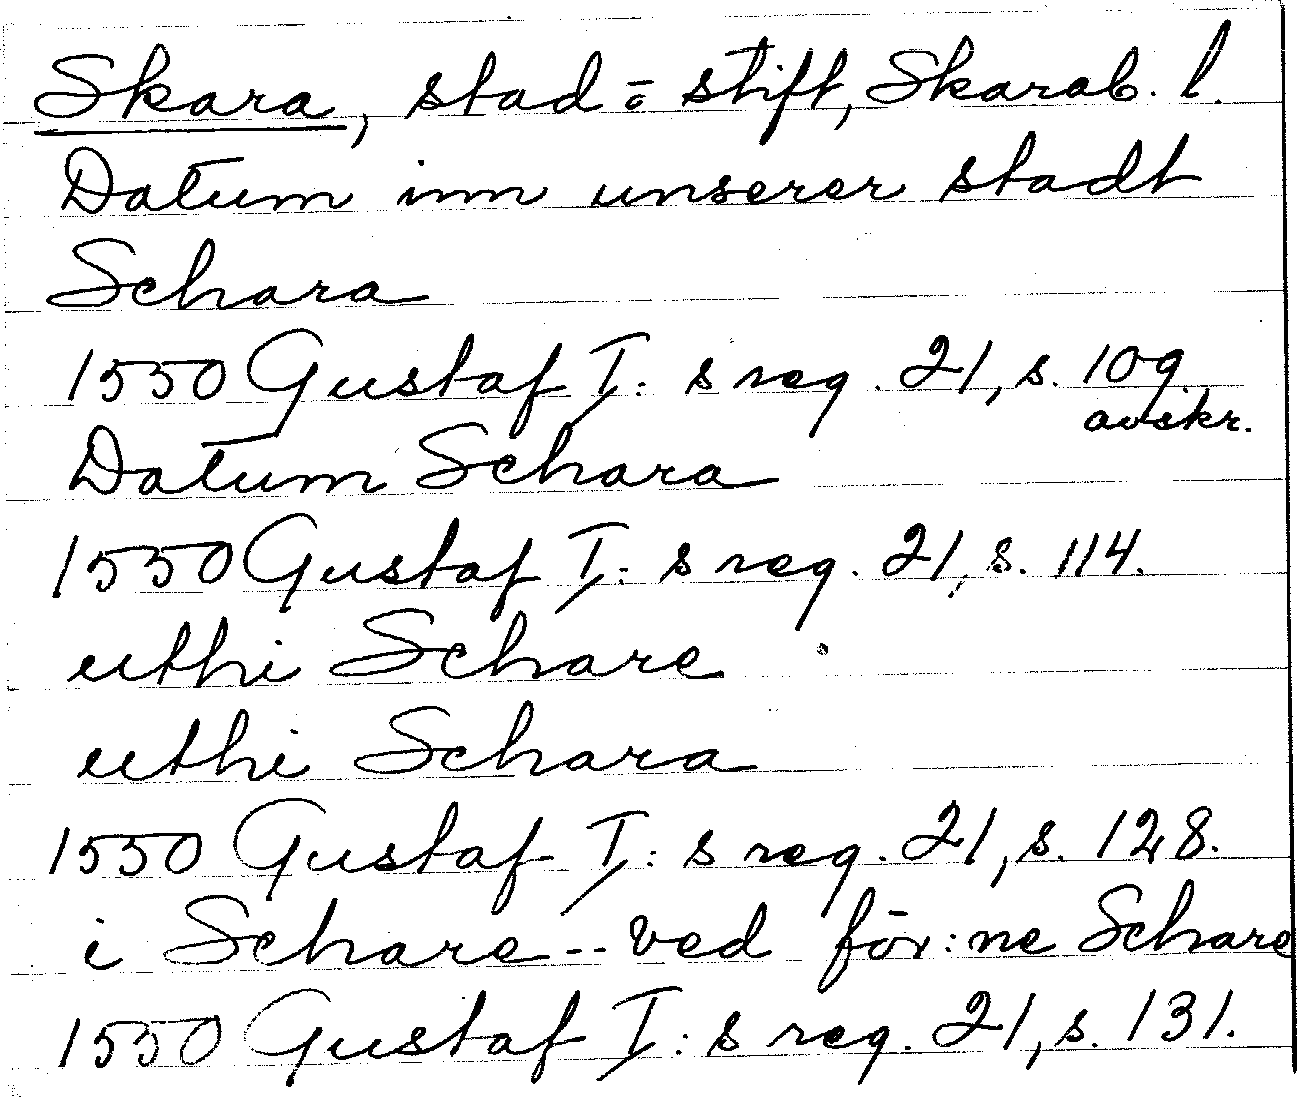 Skara, stad o stift, Skarab. l.
Datum inn unserer stadt
Schara
1550 Gustaf I:s reg. 21, s. 109.
avskr.
Datum Schara
1550 Gustaf I:s reg. 21, s. 114.
uthi Schare
uthi Schara
1550 Gustaf I:s reg. 21, s. 128.
i Schare -- ved för:ne Schare
1550 Gustaf I:s reg. 21, s. 131.